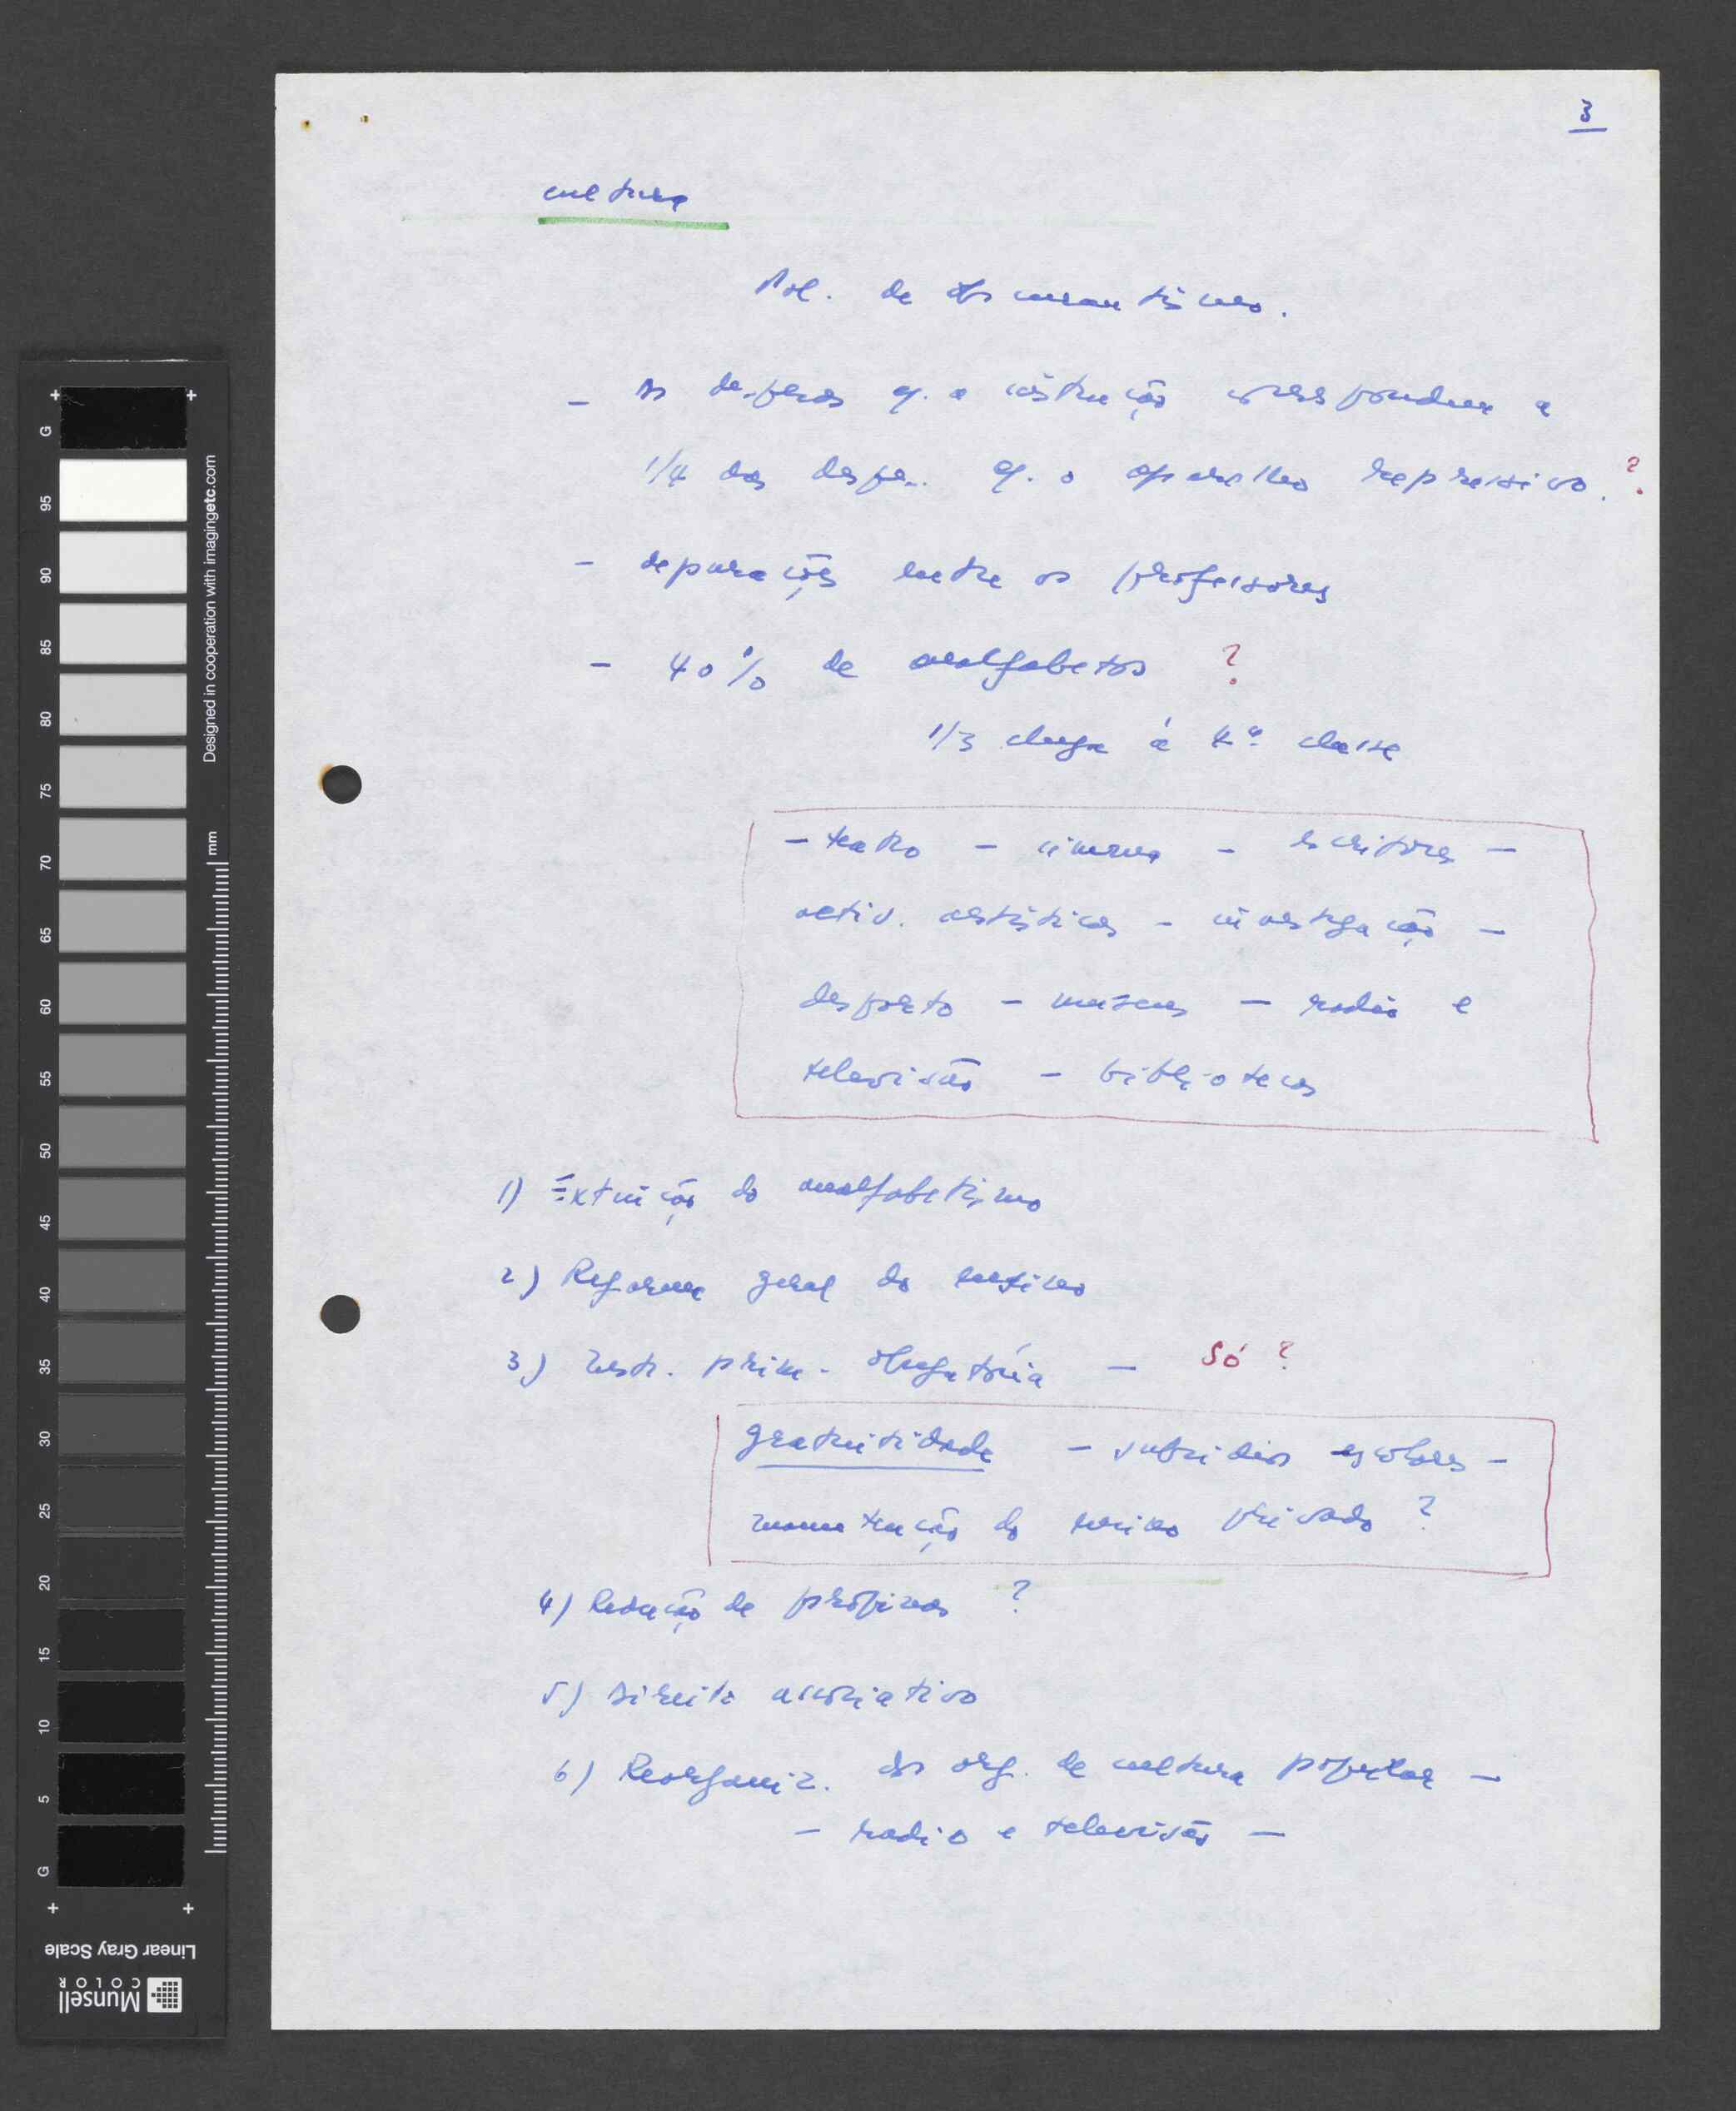 3
cultura
Pol. de obscurantismo.
- As despesas c/. a instrução correspondem a
1/4 das despe.. c/. o aparelho repressivo. ?
- depurações entre os professores
- 40% de analfabetos ?
1/3 chega à 4ª classe
- teatro - cinema - escritores -
activ. artísticas - investigação -
desporto - museus - radio e
televisão - bibliotecas
1) Extinção do analfabetismo
2) Reforma geral do ensino
3) Instr. prim. obrigatória - Só ?
gratuitidade - subsidios escolares -
manutenção do ensino privado ?
4) Redução de propinas ?
5) Direito associativo
6) Reorganiz. das org. de cultura popular -
- radio e televisão -
G 95 90 85 80 75 70 65 60 55 50 45 40 35 30 25 20 15 10 5 G
Designed in cooperation with imagingetc.com
mm
Linear Gray Scale
Munsell
COLOR